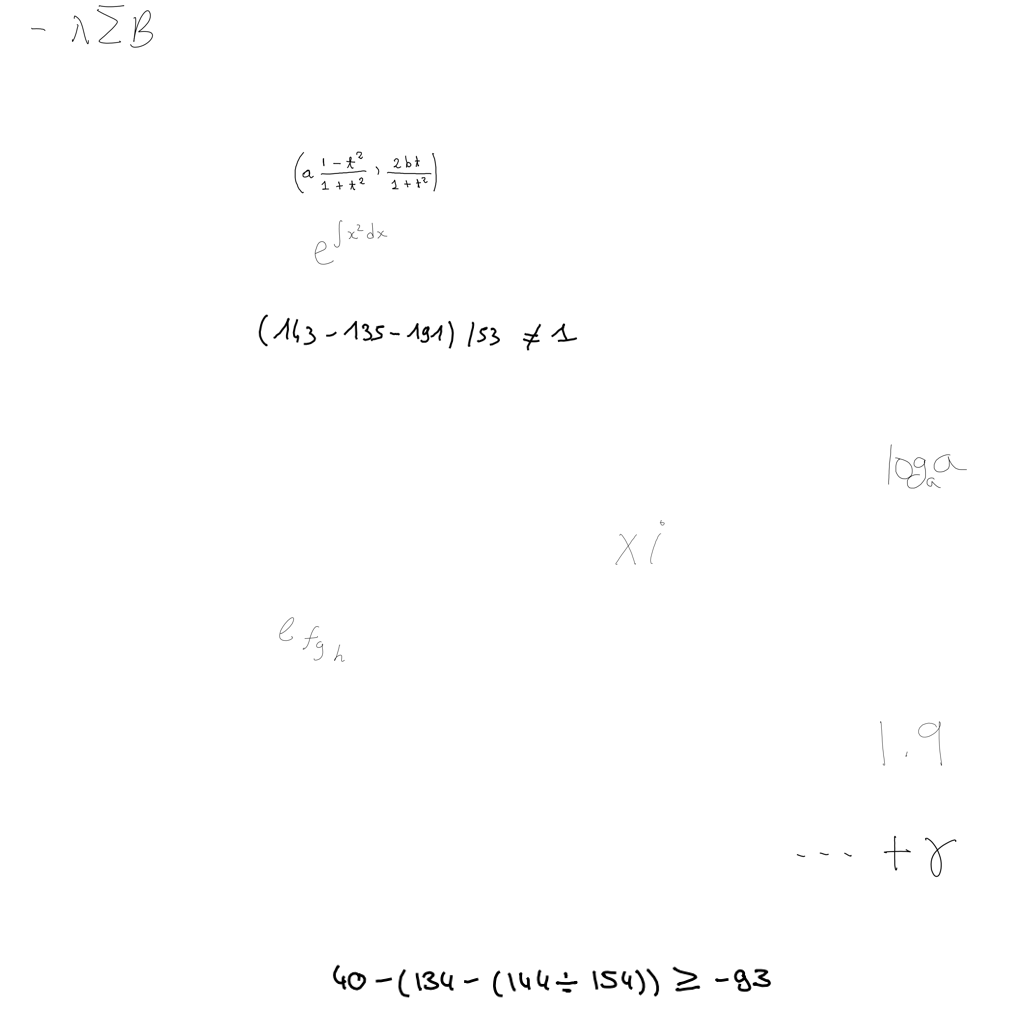 - λ∑B
(a \frac{1-t^2}{1+t^2}, \frac{2bt}{1+t^2})
e^{∫x^2dx}
(143-135-191)/53 ≠ 1
log_a a
x i
e_{f_{g_h}}
1.9
... + γ
40-(134-(144÷154)) ≥ -93